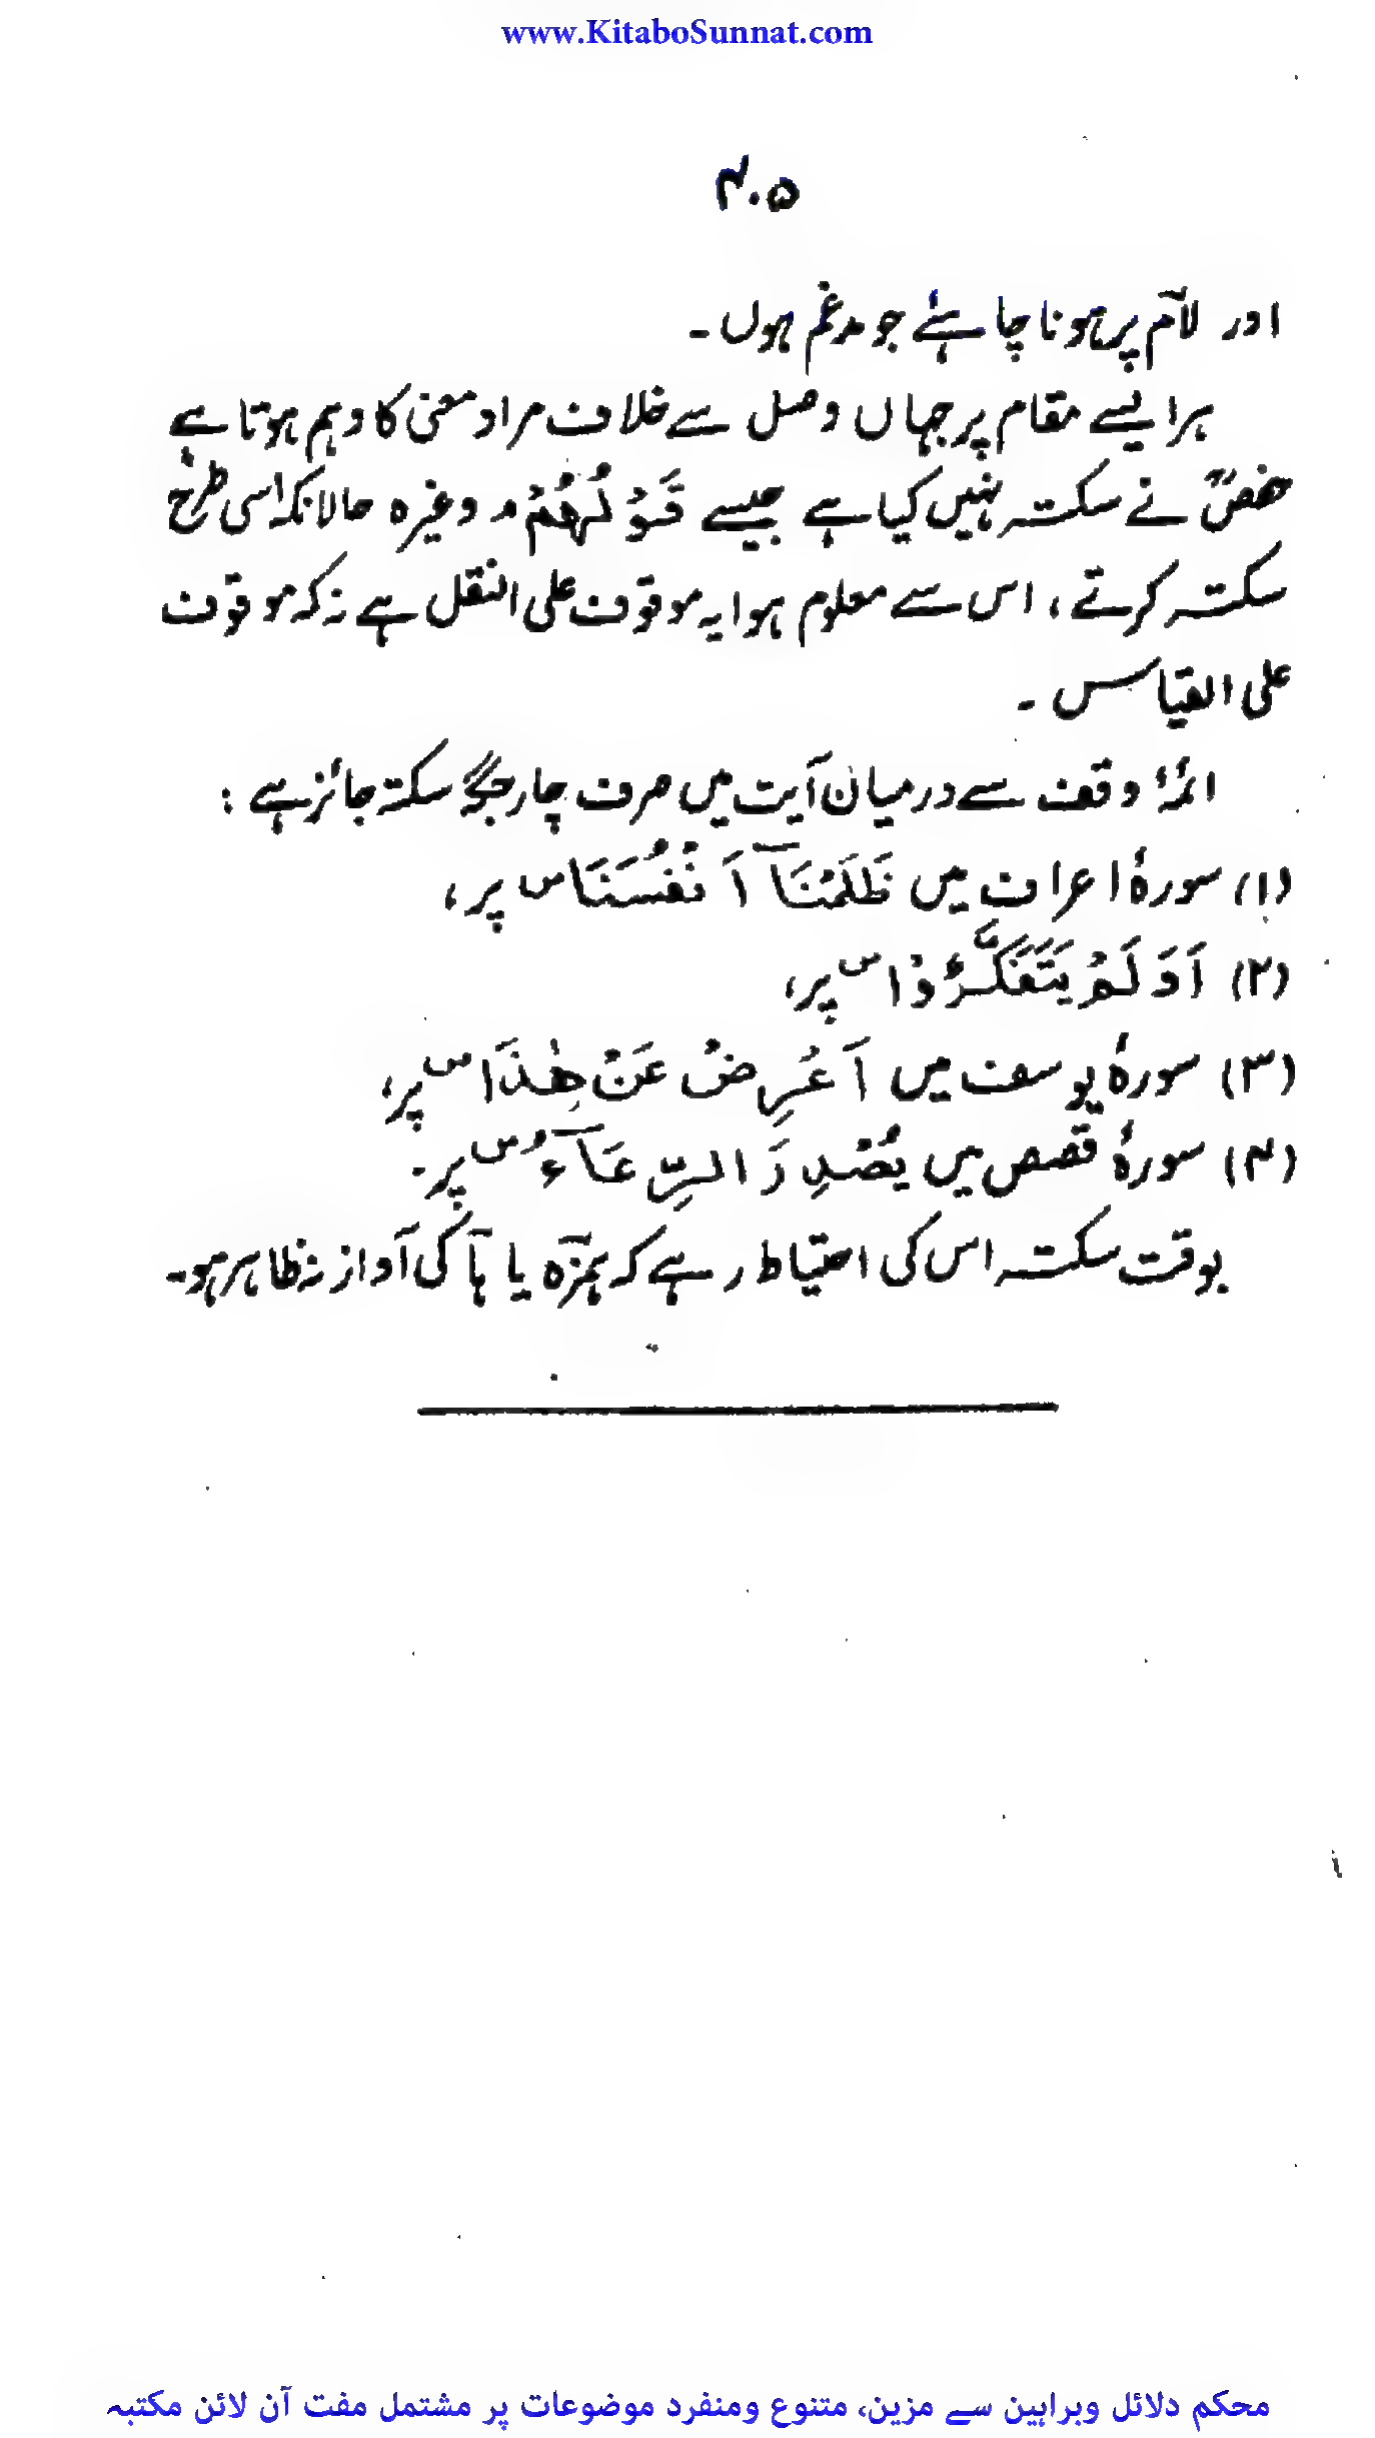 www.KitaboSunnat.com
۴۰۵
اور لآم پر ہونا چاہئے جو مدغم ہوں۔
ہر ایسے مقام پر جہاں وصل سے خلاف مراد معنی کا وہم ہوتا ہے
حفصؒ نے سکتہ نہیں کیا ہے جیسے قَوْلُهُمْ م وغیرہ حالانکہ اسی طرح
سکتہ کرتے، اس سے معلوم ہوا یہ موقوف علی النقل ہے نہ کہ موقوف
علی القیاس۔
ائمۂ وقف سے درمیان آیت میں صرف چار جگہ سکتہ جائز ہے :
(۱) سورۂ اعراف میں ظَلَمْنَآ اَنْفُسَنَا س پر،
(۲) اَوَلَمْ يَتَفَكَّرُوْا س پر،
(۳) سورۂ یوسف میں اَعْرِضْ عَنْ هٰذَا س پر،
(۴) سورۂ قصص میں يُصْدِرَ الرِّعَآءُ س پر۔
بوقت سکتہ اس کی احتیاط رہے کہ ہمزہ یا ہآ کی آواز نہ ظاہر ہو۔
محکم دلائل وبراہین سے مزین، متنوع ومنفرد موضوعات پر مشتمل مفت آن لائن مکتبہ